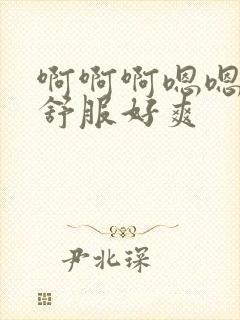 啊啊啊嗯嗯
舒服好爽
尹北琛